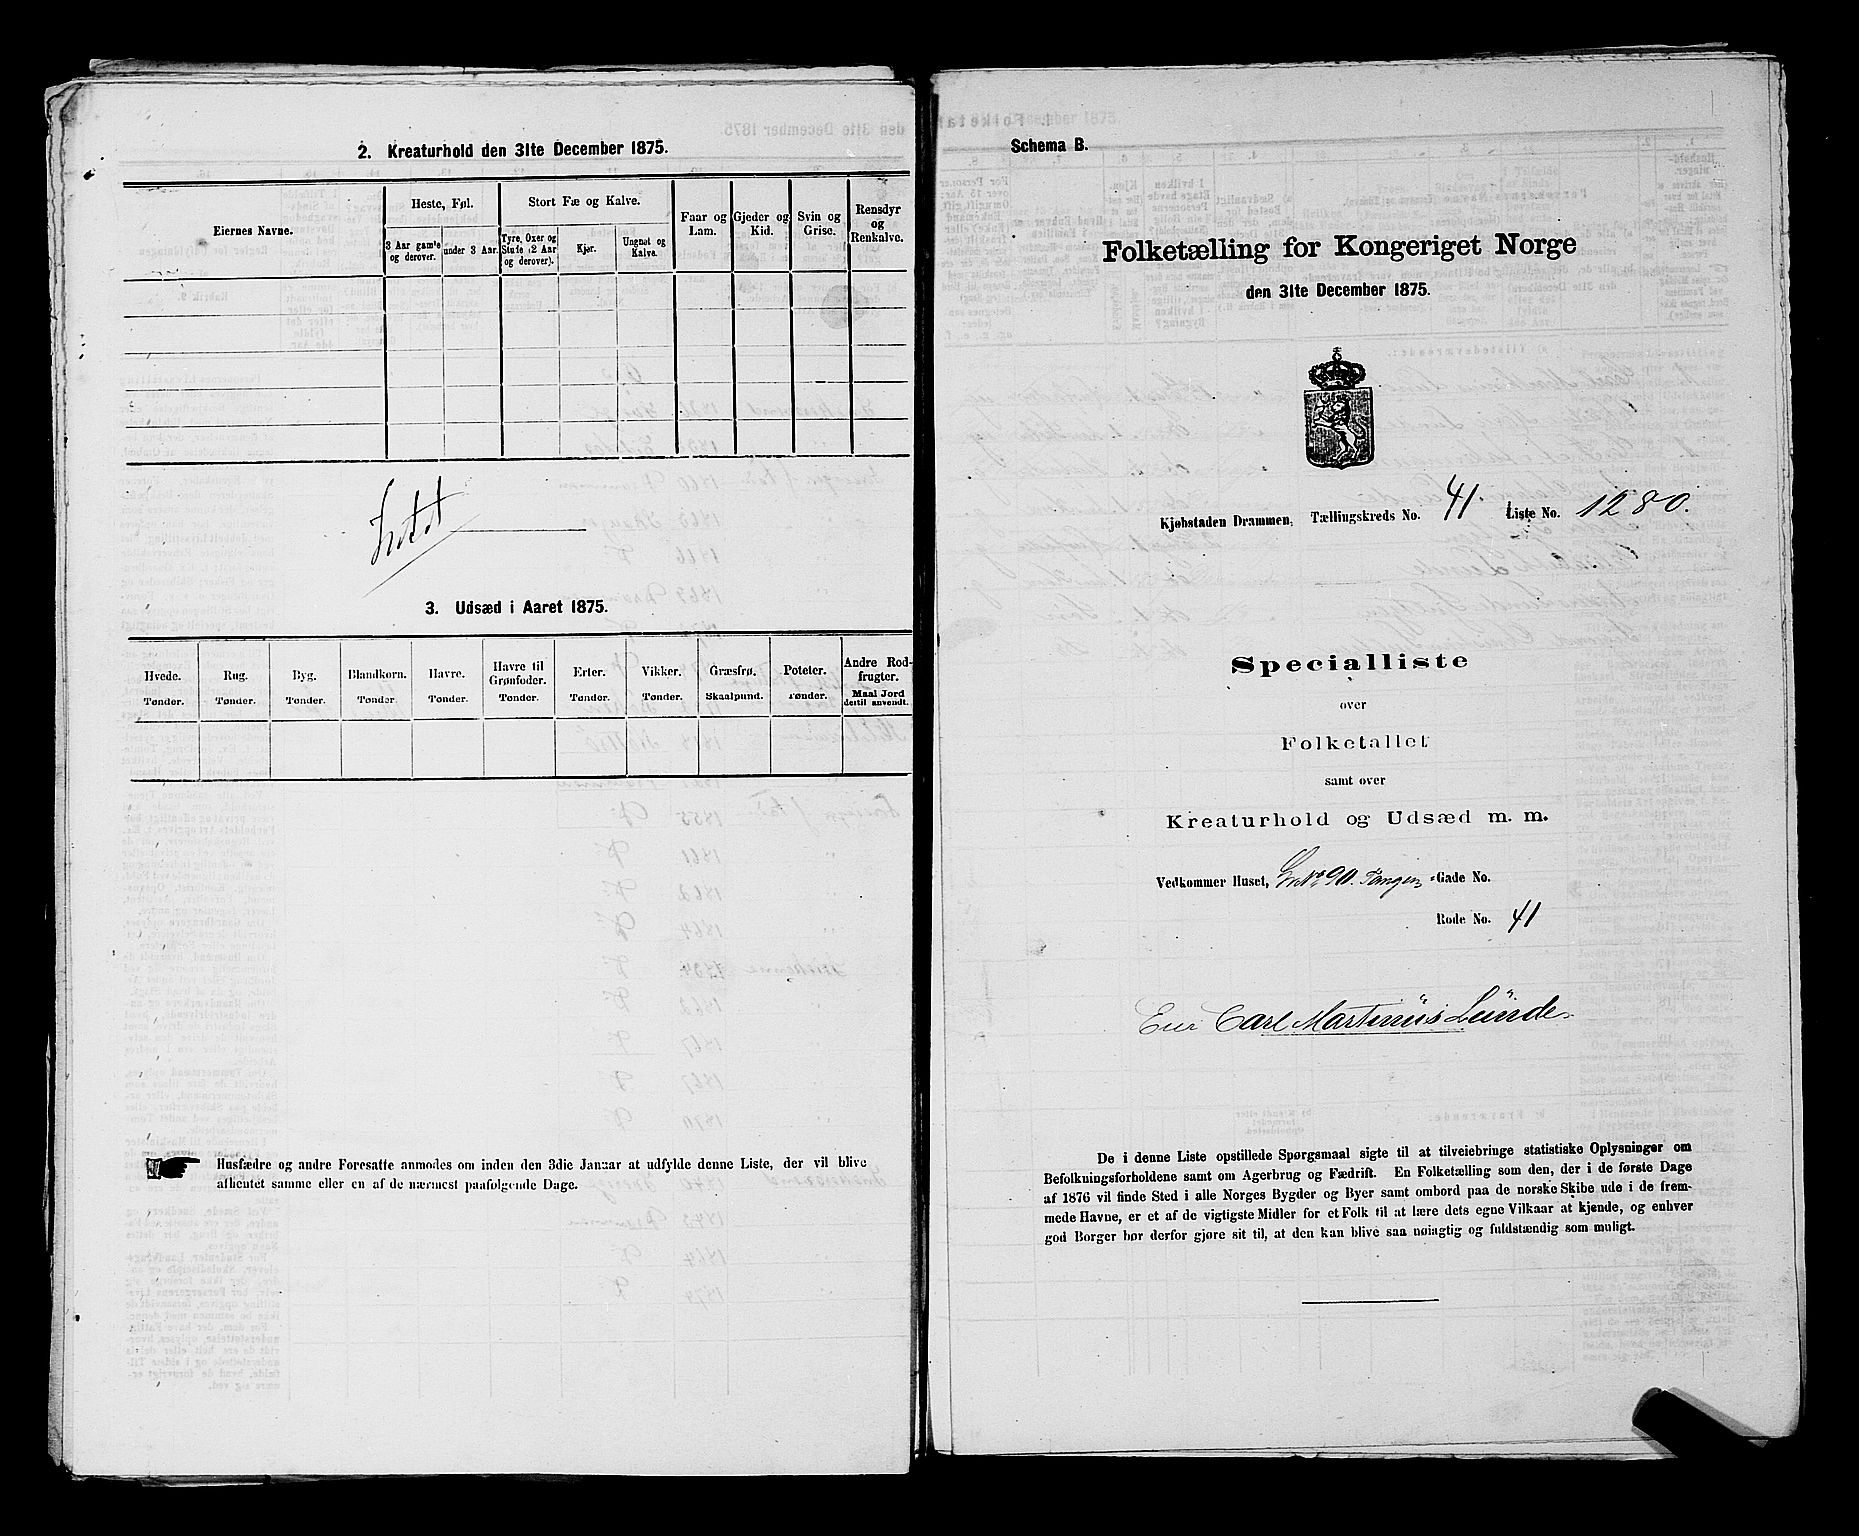 2. Kreaturhold den 31te December 1875.
Eiernes Navne.
Heste, Føl.
Stort Fæ og Kalve.
Faar og Lam.
Gjeder og Kid.
Svin og Grise.
Rensdyr og Renkalve.
3 Aar gamle og derover.
under 3 Aar.
Tyre, Oxer og Stude (2 Aar og derover).
Kjør.
Ungnøt og Kalve.
Intet
3. Udsæd i Aaret 1875.
Hvede. Rug. Byg. Blandkorn. Havre. Havre til Grønfoder. Erter. Vikker. Græsfrø. Poteter. Andre Rodfrugter.
Tønder. Tønder. Tønder. Tønder. Tønder. Tønder. Tønder. Tønder. Skaalpund. Tønder. Maal Jord dertil anvendt.
Husfædre og andre Foresatte anmodes om inden den 3die Januar at udfylde denne Liste, der vil blive
afhentet samme eller en af de nærmest paafølgende Dage.
Schema B.
Folketælling for Kongeriget Norge
den 31te December 1875.
Kjøbstaden Drammen, Tællingskreds No. 41. Liste No. 1280.
Specialliste
over
Folketallet
samt over
Kreaturhold og Udsæd m. m.
Vedkommer Huset, Gr. No 90. Tangen Gade No.
Rode No. 41
Eier Carl Martinus Lunde
De i denne Liste opstillede Spørgsmaal sigte til at tilveiebringe statistiske Oplysninger om
Befolkningsforholdene samt om Agerbrug og Fædrift. En Folketælling som den, der i de første Dage
af 1876 vil finde Sted i alle Norges Bygder og Byer samt ombord paa de norske Skibe ude i de frem-
mede Havne, er et af de vigtigste Midler for et Folk til at lære dets egne Vilkaar at kjende, og enhver
god Borger bør derfor gjøre sit til, at den kan blive saa nøiagtig og fuldstændig som muligt.